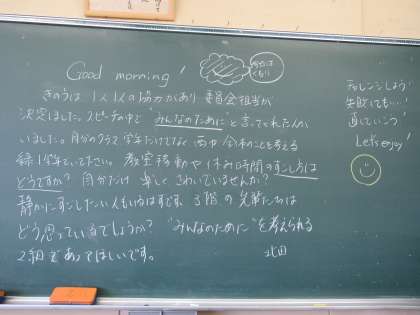 Good morning!
今日は
くもり
きのうは 1人1人の協力があり 委員会担当が
決定しました。スピーチの中で "みんなのために"と言ってくれた人が
いました。自分のクラス 学年だけでなく 西中 全体のことも考える
1年でいて下さい。教室移動や休み時間のすごし方は
どうですか? 自分だけ 楽しく さわいでいませんか?
静かにすごしたい人もいるはずです。3階の先輩たちは
どう思っているでしょうか? "みんなのために"を考えられる
2組であってほしいです。
北田
チャレンジしよう!
失敗しても…!
直していこう!
Let's enjoy!